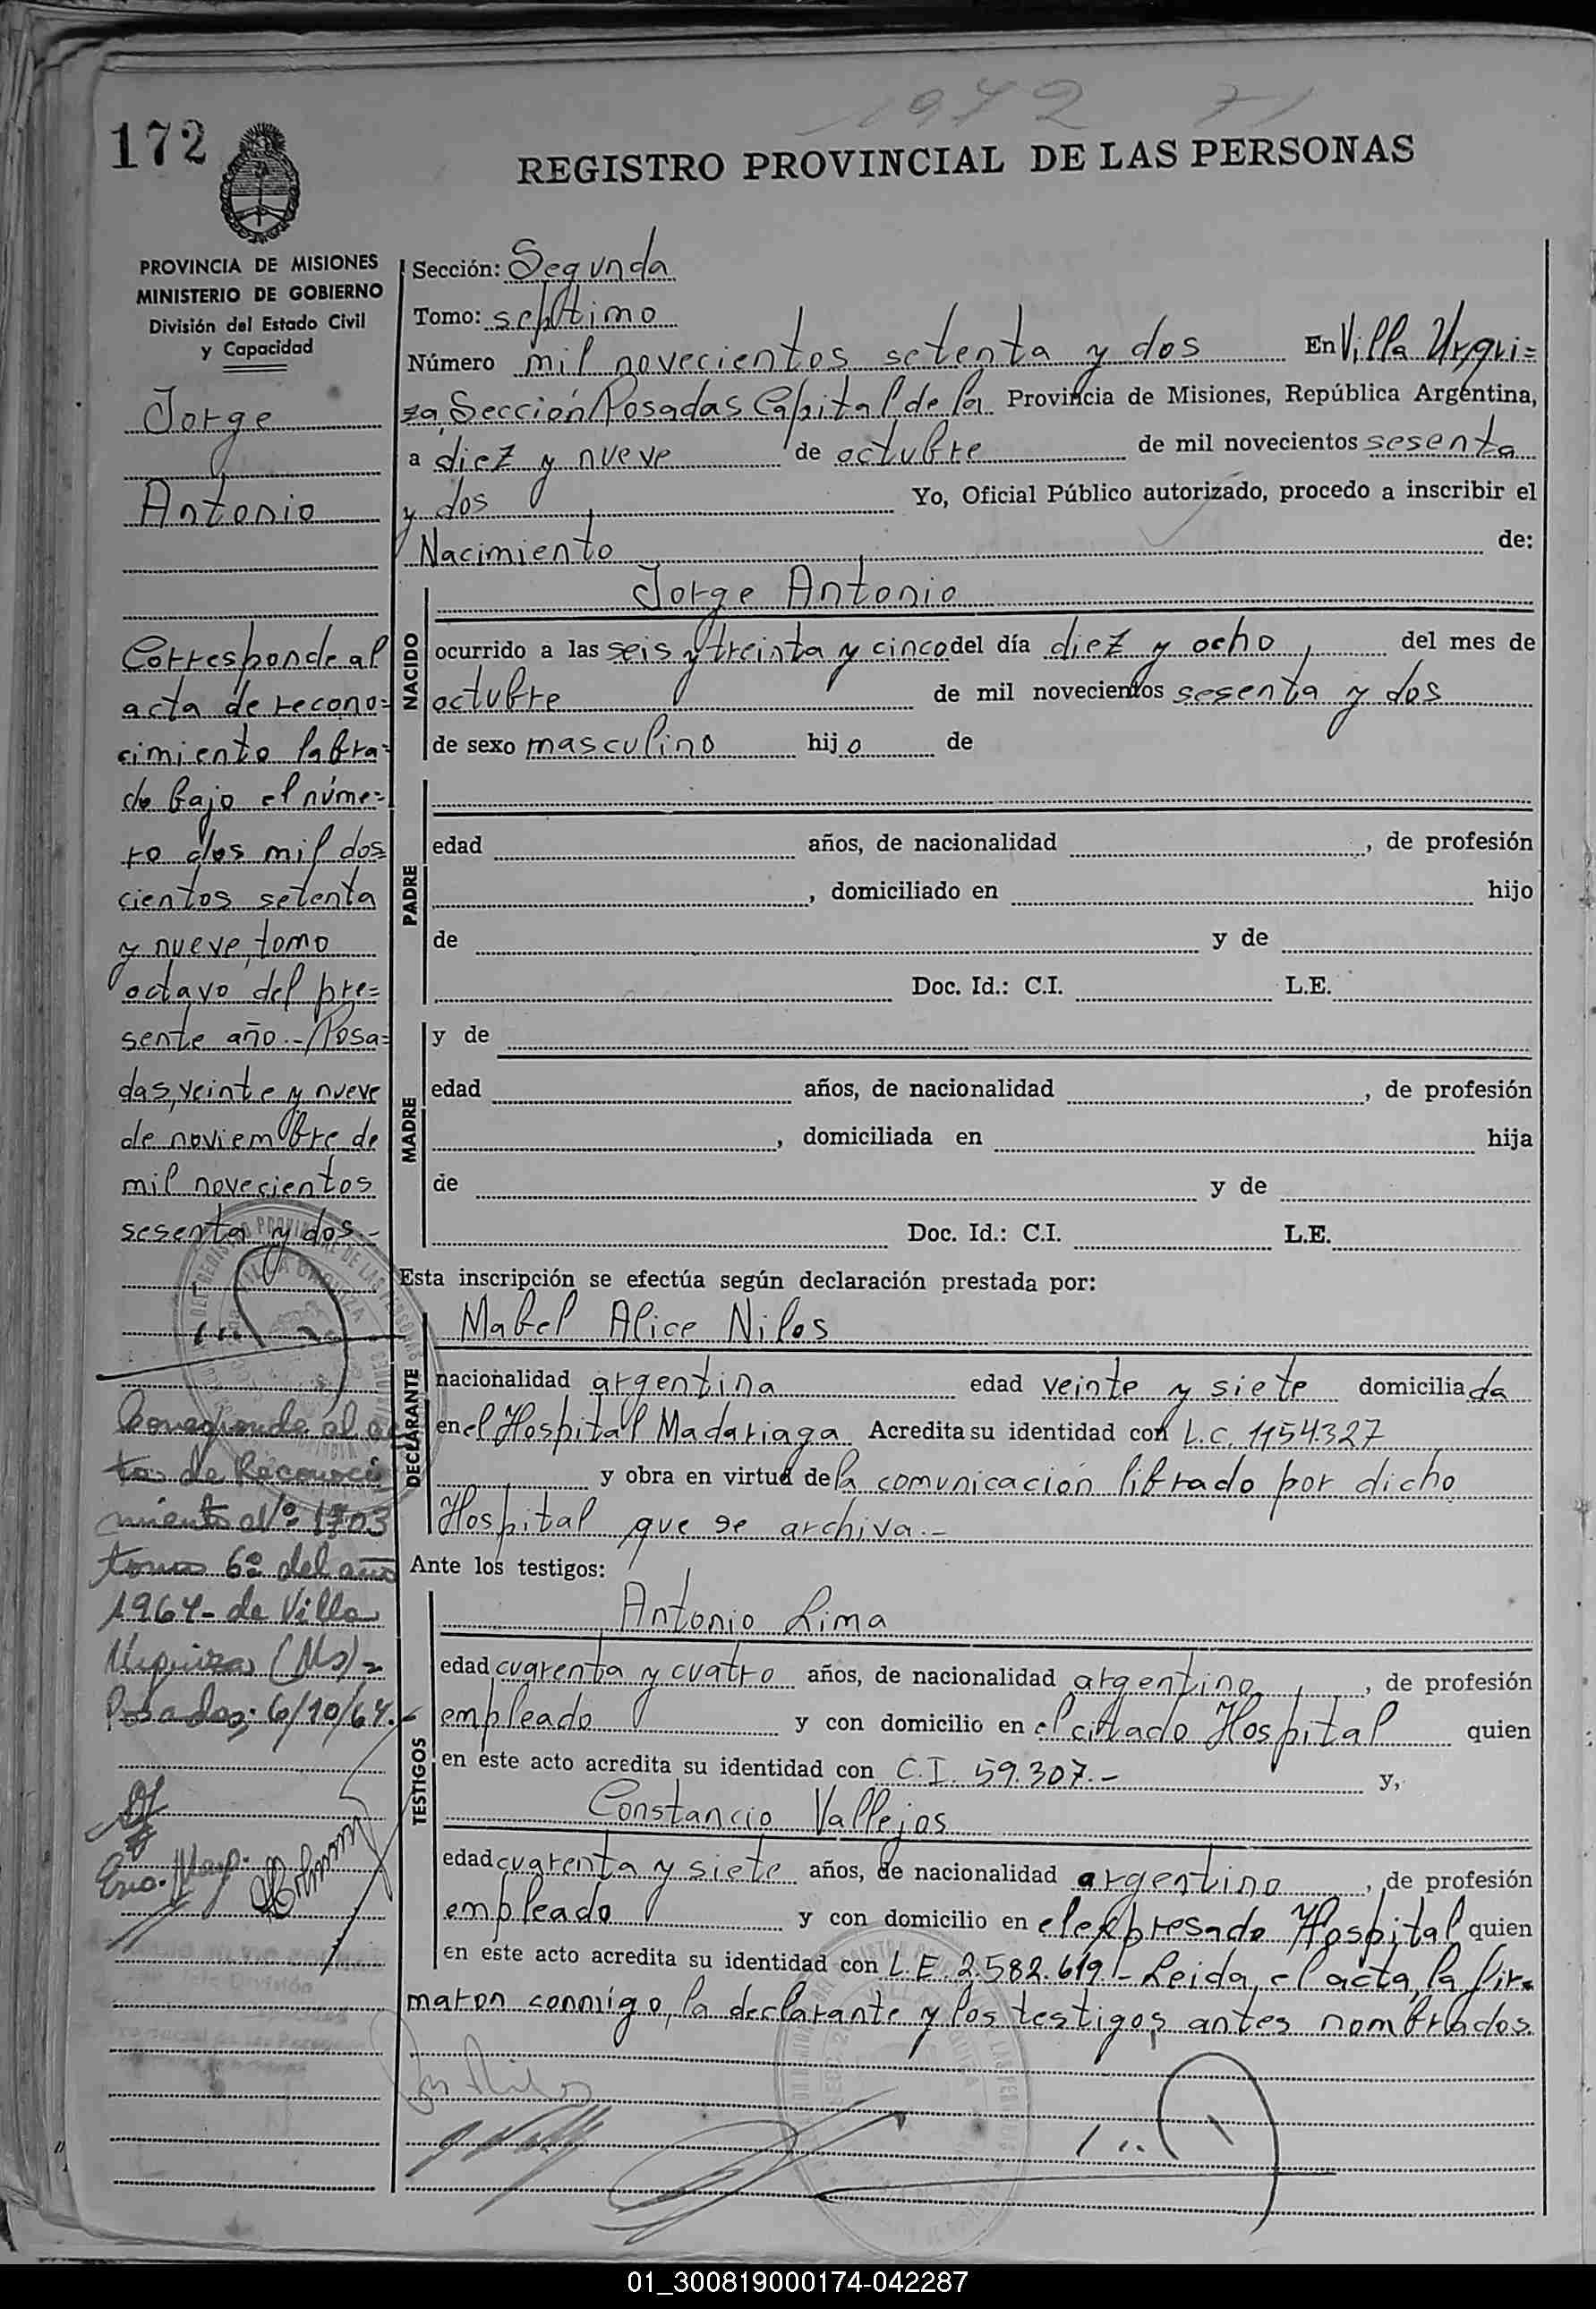 1972 71
172
REGISTRO PROVINCIAL DE LAS PERSONAS
PROVINCIA DE MISIONES
MINISTERIO DE GOBIERNO
División del Estado Civil
y Capacidad
Jorge
Antonio
Corresponde al
acta de recono=
cimiento labra=
do bajo el núme=
ro dos mil dos
cientos setenta
y nueve, tomo
octavo del pre=
sente año.- Posa=
das, veinte y nueve
de noviembre de
mil novecientos
sesenta y dos.-
Corresponde al ac
ta de Reconoci
miento Nº 1703
tomo 6º del año
1964- de Villa
Urquiza (Ms)=
Posadas; 6/10/64.-
Sección: Segunda
Tomo: septimo
Número mil novecientos setenta y dos En Villa Urqui=
za, Sección Posadas Capital de la Provincia de Misiones, República Argentina,
a diez y nueve de octubre de mil novecientos sesenta
y dos Yo, Oficial Público autorizado, procedo a inscribir el
Nacimiento de:
NACIDO
Jorge Antonio
ocurrido a las seis y treinta y cinco del día diez y ocho, del mes de
octubre de mil novecientos sesenta y dos
de sexo masculino hijo de
PADRE
edad años, de nacionalidad , de profesión
, domiciliado en hijo
de y de
Doc. Id.: C.I. L.E.
MADRE
y de
edad años, de nacionalidad , de profesión
, domiciliada en hija
de y de
Doc. Id.: C.I. L.E.
Esta inscripción se efectúa según declaración prestada por:
DECLARANTE
Mabel Alice Nilos
nacionalidad argentina edad veinte y siete domiciliada
en el Hospital Madariaga Acredita su identidad con L.C. 1154327
y obra en virtud de la comunicación librado por dicho
Hospital que se archiva.-
Ante los testigos:
TESTIGOS
Antonio Lima
edad cuarenta y cuatro años, de nacionalidad argentino, de profesión
empleado y con domicilio en el citado Hospital quien
en este acto acredita su identidad con C.I. 59.307.- y,
Constancio Vallejos
edad cuarenta y siete años, de nacionalidad argentino, de profesión
empleado y con domicilio en el expresado Hospital quien
en este acto acredita su identidad con L.E. 2.582.619.- Leida, el acta, la fir=
maron conmigo, la declarante y los testigos antes nombrados.
01_300819000174-042287